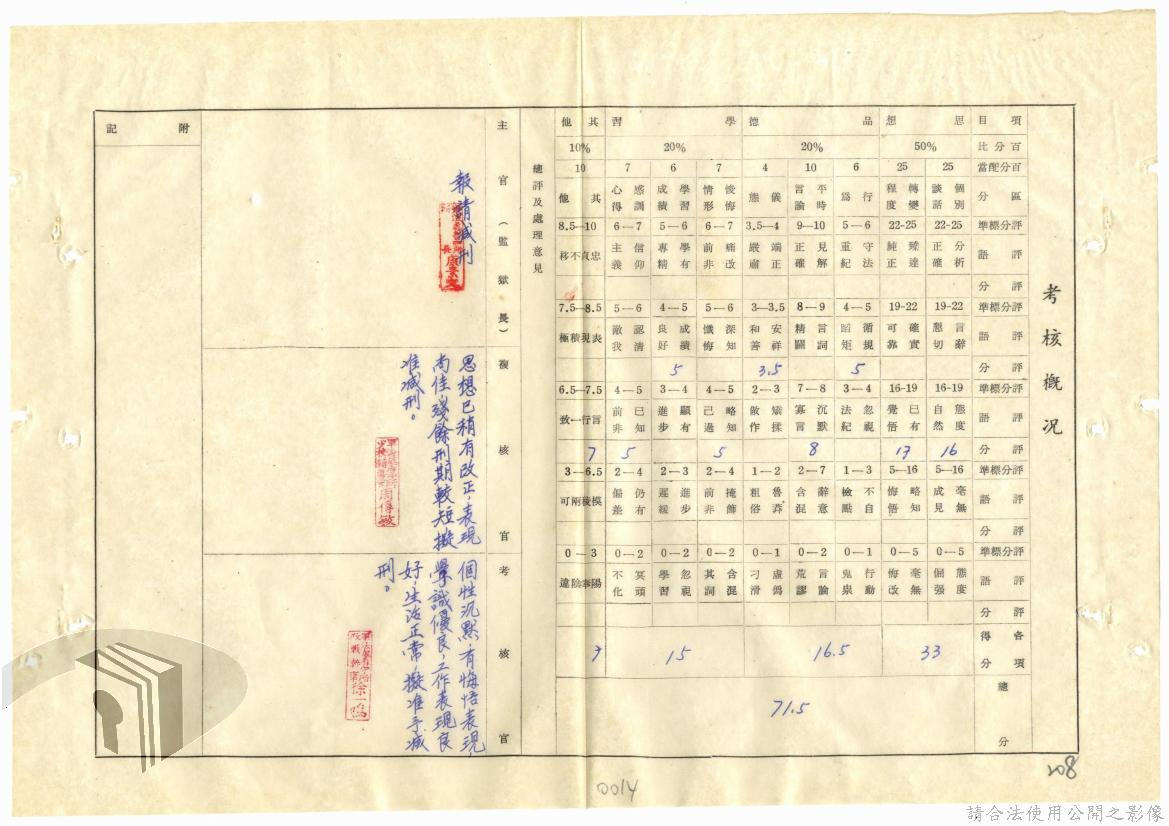 考核概況
項目 思想 品德 學習 其他
百分比 50% 20% 20% 10%
百分配當 25 25 6 10 4 7 6 7 10
區分 個別談話 轉變程度 行爲 平時言論 儀態 悛悔情形 學習成績 感訓心得 其他
評分標準 22-25 22-25 5—6 9—10 3.5—4 6—7 5—6 6—7 8.5—10
評語 分析正確 臻達純正 守法重紀 見解正確 端正嚴肅 痛改前非 學有專精 信仰主義 忠貞不移
評分
評分標準 19-22 19-22 4—5 8—9 3—3.5 5—6 4—5 5—6 7.5—8.5
評語 言辭懇切 確實可靠 循規蹈矩 言詞精闢 安祥和善 深知懺悔 成績良好 認清敵我 表現積極
評分 5 3.5 5
評分標準 16-19 16-19 3—4 7—8 2—3 4—5 3—4 4—5 6.5—7.5
評語 態度自然 已有覺悟 忽視法紀 沉默寡言 矯揉做作 略知己過 顯有進步 已知前非 言行一致
評分 16 17 8 5 5 7
評分標準 5—16 5—16 1—3 2—7 1—2 2—4 2—3 2—4 3—6.5
評語 毫無成見 略知悔悟 不自檢點 辭意含混 魯莽粗俗 掩飾前非 進步遲緩 仍有偏差 模稜兩可
評分
評分標準 0—5 0—5 0—1 0—2 0—1 0—2 0—2 0—2 0—3
評語 態度倔强 毫無悔改 行動鬼祟 言論荒謬 虛僞刁滑 含混其詞 忽視學習 冥頑不化 陽奉陰違
評分
各項得分 33 16.5 15 7
總分 71.5
總評及處理意見
主官（監獄長）
報請減刑
複核官
思想已稍有改正，表現
尚佳，殘餘刑期較短擬
准減刑。
周傳敏
考核官
個性沉默，有悔悟表現，
學識優良，工作表現良
好，生活正常，擬准予減
刑。
附記
0014
208
請合法使用公開之影像